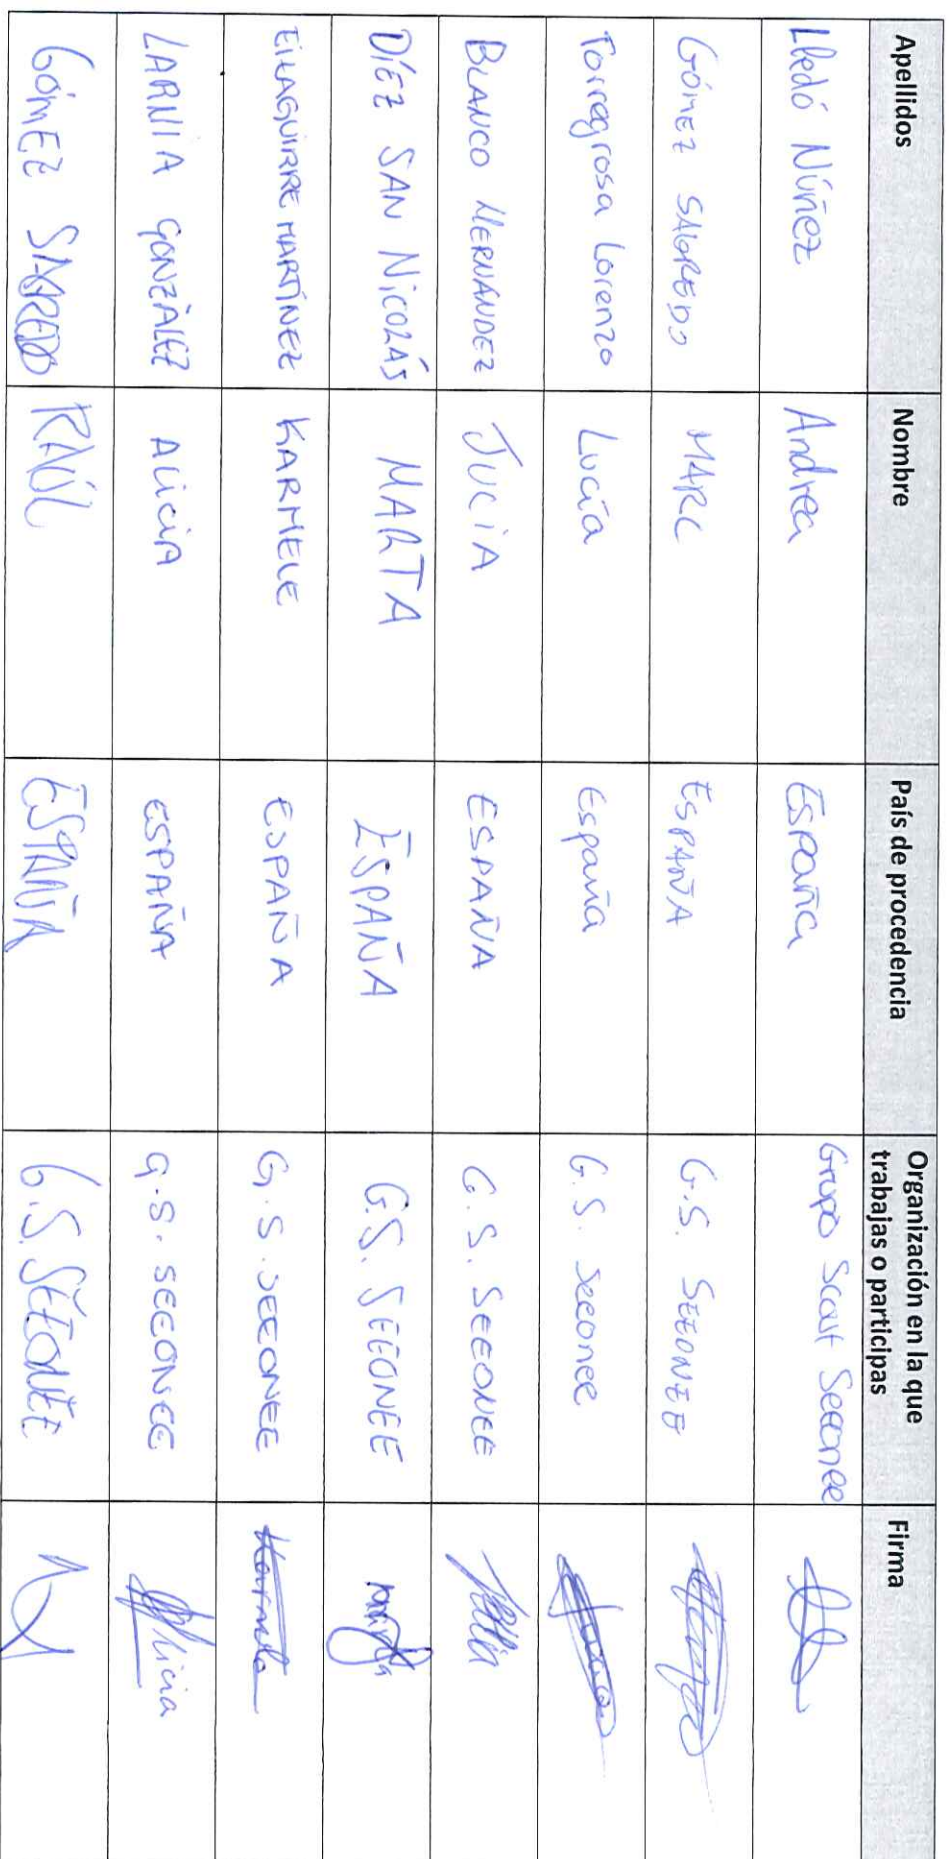 Apellidos Nombre País de procedencia Organización en la que trabajas o participas Firma
Lledó Núñez Andrea España Grupo Scout Seeonee
GÓMEZ SALOREDO MARC ESPAÑA G.S. SEEONEE
Torregrosa Lorenzo Lucía España G.S. Seeonee Lucía
BLANCO HERNÁNDEZ JULIA ESPAÑA G.S. SEEONEE Julia
DÍEZ SAN NICOLÁS MARTA ESPAÑA G.S. SEEONEE Marta
EIZAGUIRRE MARTÍNEZ KARMELE ESPAÑA G.S. SEEONEE Karmele
LARNIA GONZÁLEZ ALICIA ESPAÑA G.S. SEEONEE Alicia
GÓMEZ RAÚL ESPAÑA G.S. SEEONEE